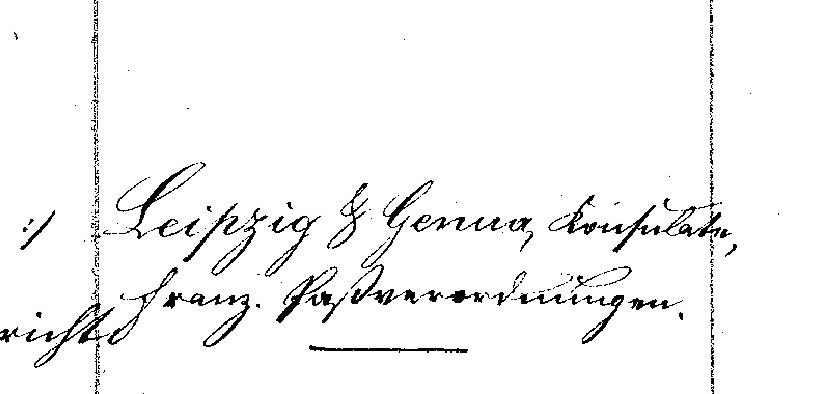 :/ Leipzig & Genua, Konsulate,
franz. Paßverordnungen.
richt